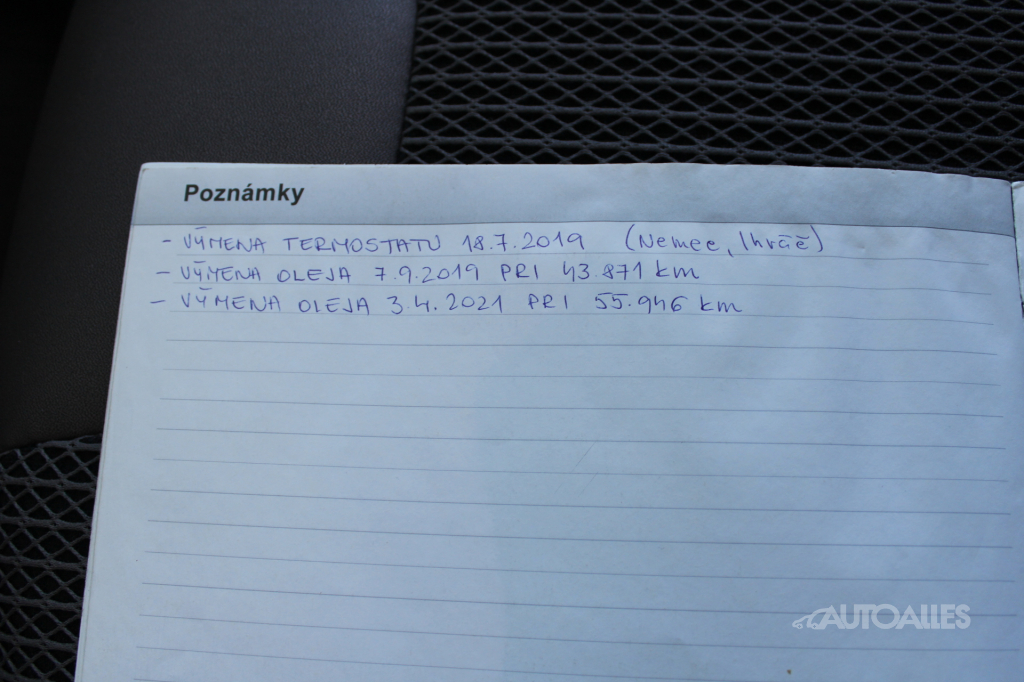 Poznámky
- VÝMENA TERMOSTATU 18.7.2019 (Nemec, Ihráč)
- VÝMENA OLEJA 7.9.2019 PRI 43.871 km
- VÝMENA OLEJA 3.4.2021 PRI 55.946 km
AUTOALLES